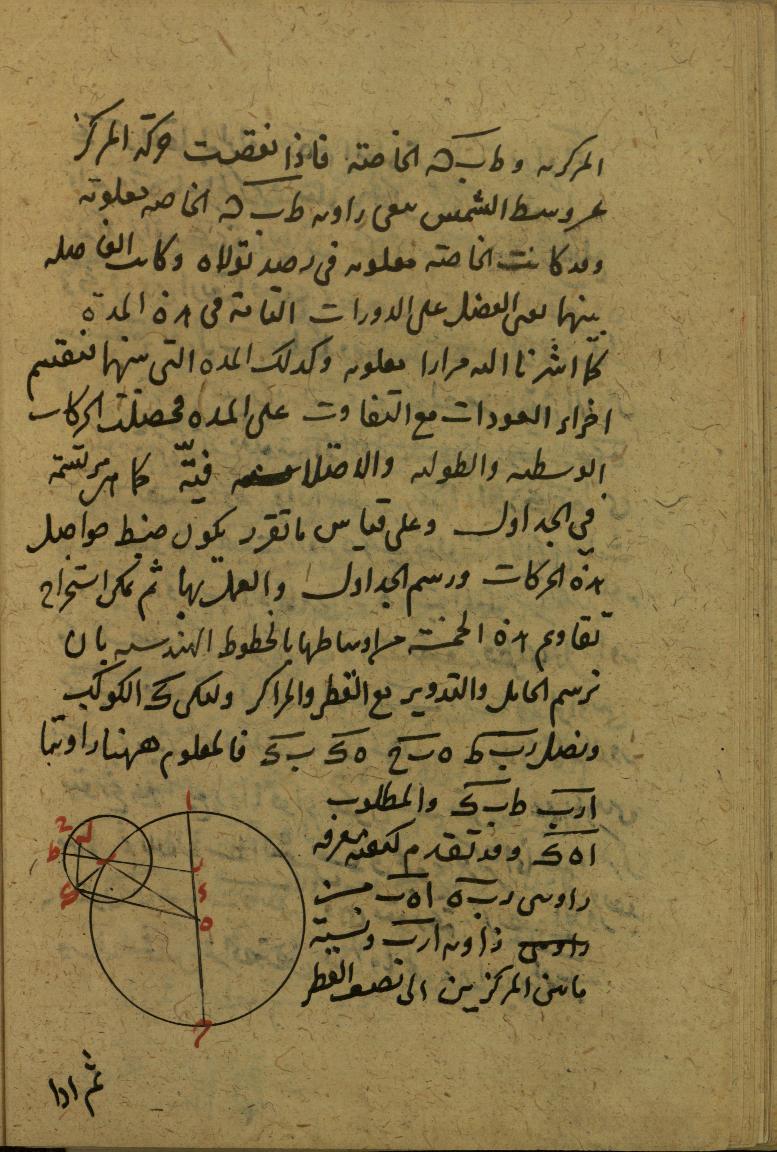 المركزىه و طب‍ ه الخاصة فاذا نقصت حركة المركز
عن وسط الشمس بقى زاوية ط ب ه الخاصه معلومة
وقد كانت الخاصة معلومه فى رصد نولاه وكانت الفاضله
بينهما بعنى الفضل على الدورات التامة فى هذه المدة
كما اشرنا اليه مرارا معلومه وكذلك المده التى بينهما فنقسم
اجزاء العودات مع التفاوت على المده فحصلت الحركات
الوسطيه والطوليه والاختلافيّة كما هى مرتسمة
فى الجداول وعلى قياس ما تقرر يكون ضبط حواصل
هذه الحركات ورسم الجداول والعمل بها ثم يمكن استخراج
تقاويم هذه الخمسة من اوساطها بالخطوط الهندسيه بان
نرسم الحامل والتدوير مع القطر والمراكز وليكن ك الكوكب
ونصل رب ط ه ب ح ه ك ب ك فالمعلوم ههنا زاويتا
ا ر ب ط ب ك والمطلوب
ا ه ك وقد تقدم كيفية معرفة
زاويتى ر ب ه ا ه ب من
زاوية ا ر ب ونسبة
ما بين المركزين الى نصف القطر
ثم اذا
ا
ح
ل
ط
ب
ك
ر
د
ه
ج